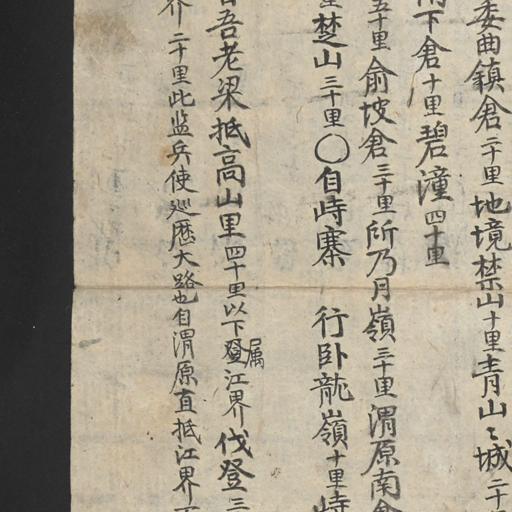 委曲鎮倉二十里地境禁山十里青山〻城二十
下倉十里碧潼四十里
五十里俞坡倉三十里所乃月嶺三十里渭原南倉
楚山三十里〇自峙寨 行卧龍嶺十里峙
吾老梁抵高山里四十里以下屬登江界伐登三
界二十里此监兵使巡歷大路也自渭原直抵江界